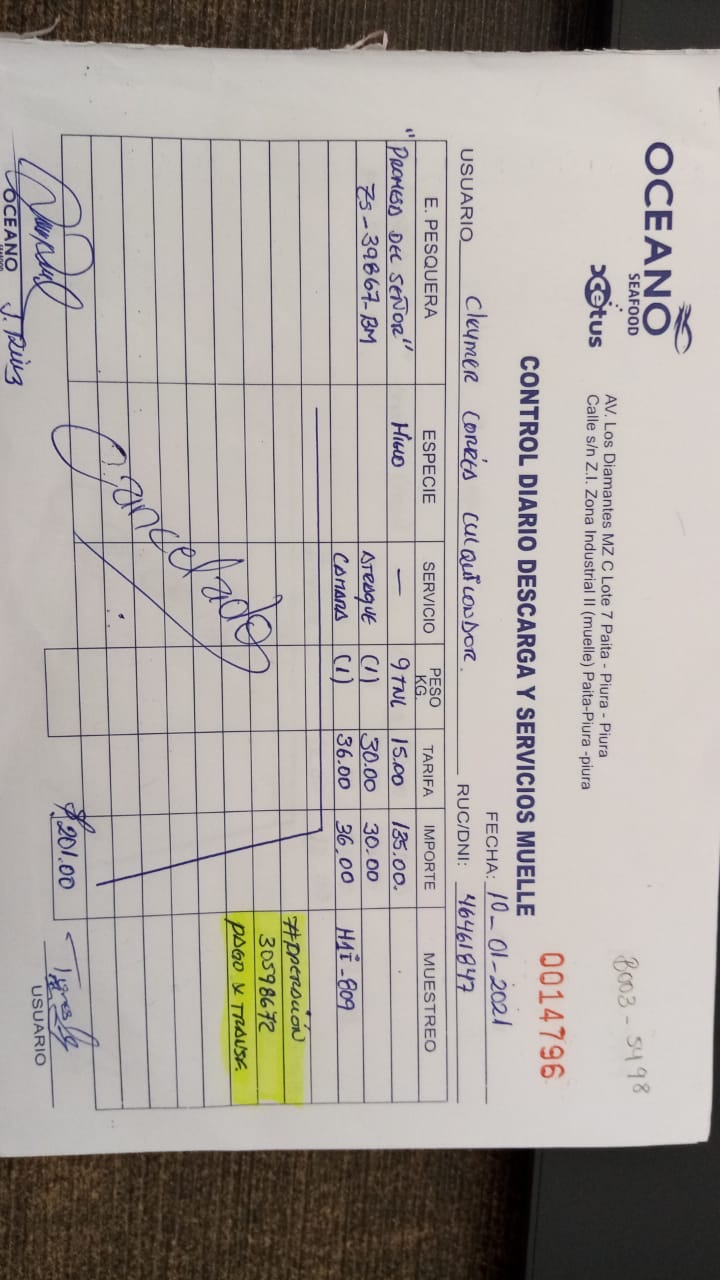 OCEANO
SEAFOOD
xcetus
AV. Los Diamantes MZ C Lote 7 Paita - Piura - Piura
Calle s/n Z.I. Zona Industrial II (muelle) Paita-Piura -piura
B003 - 5498
0014796
CONTROL DIARIO DESCARGA Y SERVICIOS MUELLE
FECHA: 10-01-2021
USUARIO Cleymer Correa Culquicondor. RUC/DNI: 46461847
E. PESQUERA ESPECIE SERVICIO PESO KG. TARIFA IMPORTE MUESTREO
"PROMESA DEL SEÑOR" — 9 TNL 15.00 135.00.
ZS-39867-BM ATRAQUE (1) 30.00 30.00
CAMARA (1) 36.00 36.00 H1I-809
#OPERACIÓN
30598672
PAGO X TRANSF.
Cancelado
$201.00
USUARIO
OCEANO